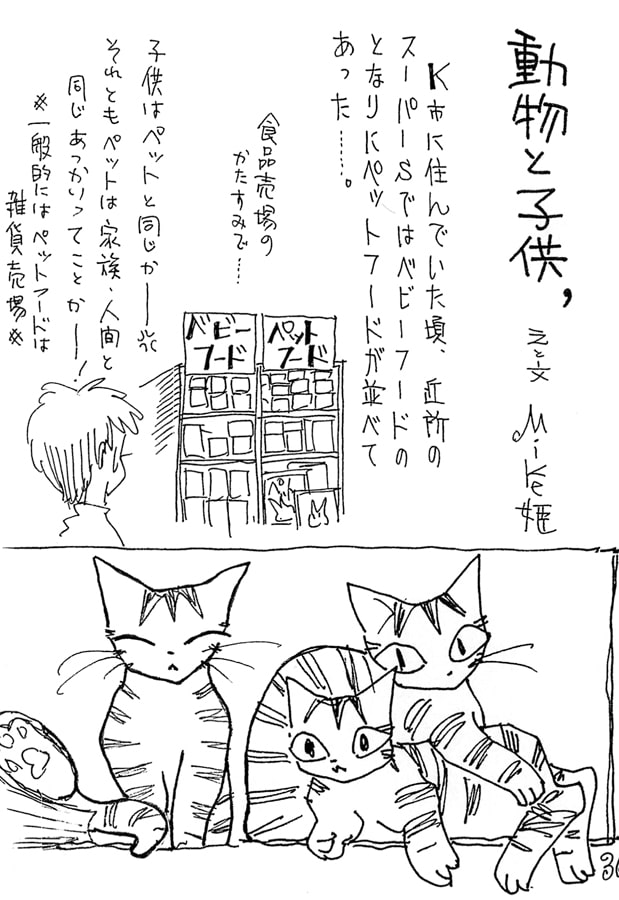 動物と子供,
えと文 Mike姫
K市に住んでいた頃、近所の
スーパーSではベビーフードの
となりにペットフードが並べて
あった……。
食品売場の
かたすみで…
ベビー
フード
ペット
フード
子供はペットと同じかー
それともペットは家族、人間と
同じあつかいってことかー!
※一般的にはペットフードは
雑貨売場※